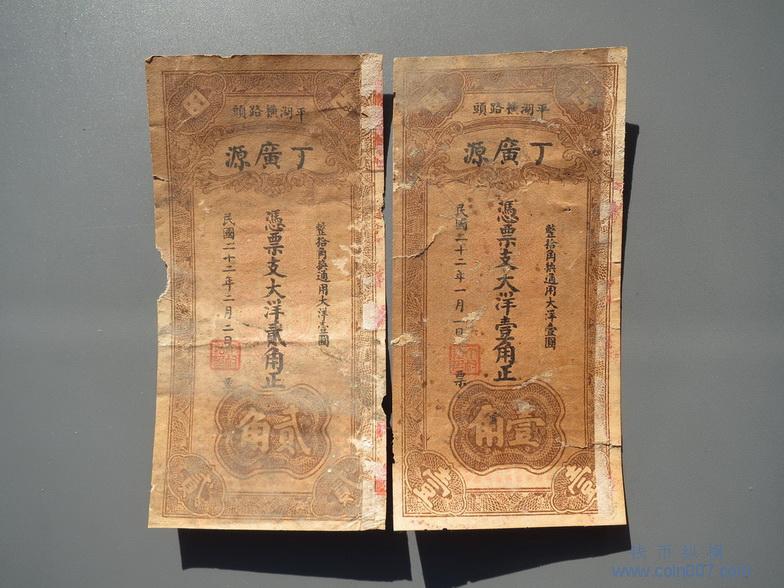 平湖橫路頭
丁廣源
整拾角換通用大洋壹圓
憑票支大洋貳角正
民國二十二年二月二日
票
貳角
平湖橫路頭
丁廣源
整拾角換通用大洋壹圓
憑票支大洋壹角正
民國二十二年一月一日
票
壹角
www.coin007.com